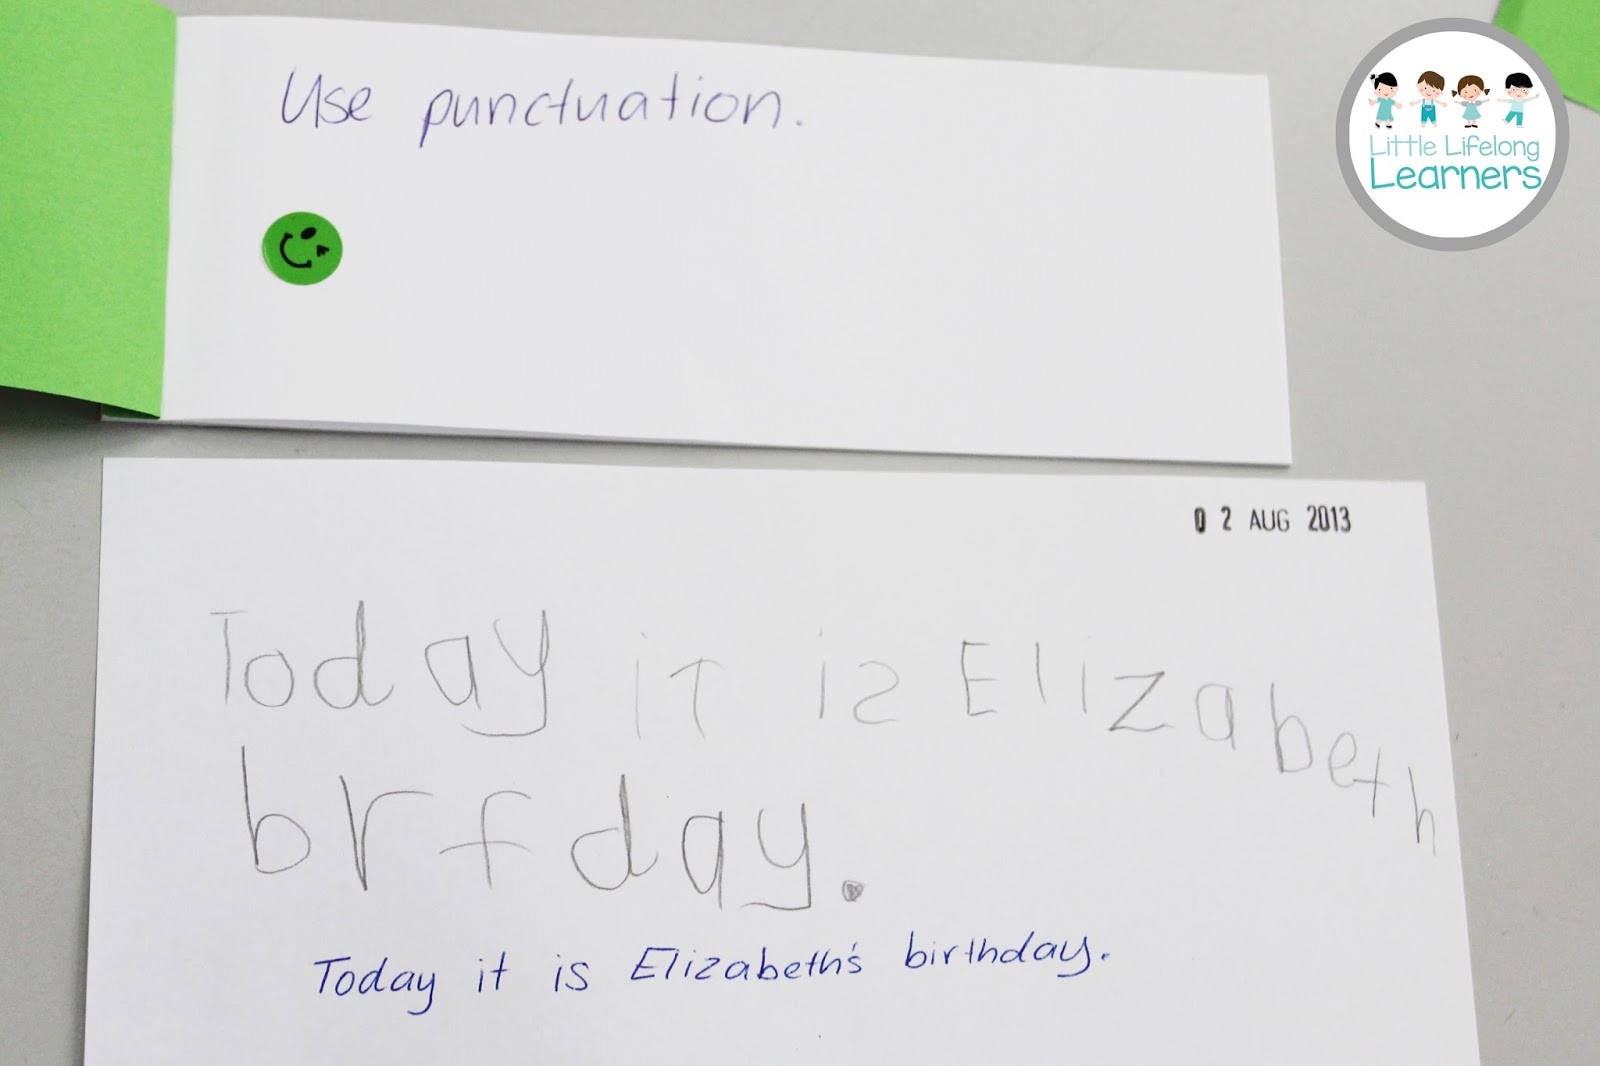 Use punctuation.
Little Lifelong
Learners
02 AUG 2013
Today it is Elizabeth
brfday.
Today it is Elizabeth's birthday.